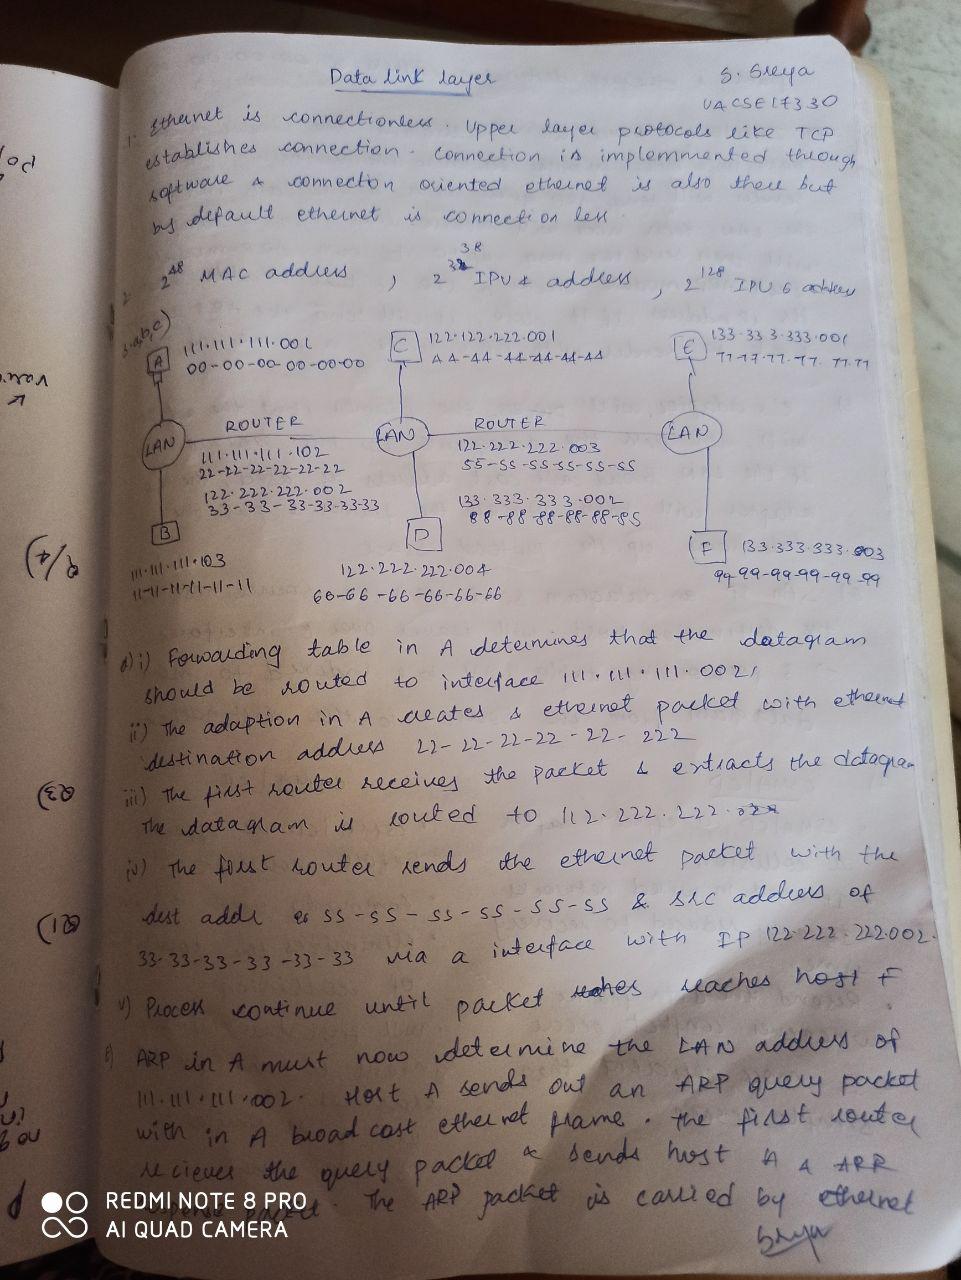 Data link layer
S. Sreya
UACSE17330
1. Ethernet is connectionless. Upper layer protocols like TCP
establishes connection. Connection is implemmented through
software & connection oriented ethernet is also there but
by default ethernet is connection less.
2 2^48 MAC address , 2^32 38 IPV4 address , 2^128 IPV6 address
3. a,b,c)
A 111.111.111.001
00-00-00-00-00-00
C 122.122.222.001
44-44-44-44-44-44
E 133.333.333.001
77-77-77-77-77-77
LAN ROUTER LAN ROUTER LAN
111.111.111.102
22-22-22-22-22-22
122.222.222.002
33-33-33-33-33-33
122.222.222.003
55-55-55-55-55-55
133.333.333.002
88-88-88-88-88-88
B
111.111.111.103
11-11-11-11-11-11
D
122.222.222.004
66-66-66-66-66-66
F 133.333.333.003
99-99-99-99-99-99
d) i) Forwarding table in A determines that the datagram
should be routed to interface 111.111.111.002
ii) The adaption in A creates & ethernet packet with ethernet
destination address 22-22-22-22-22-222
iii) The first router receives the packet & extracts the datagram
The datagram is routed to 112.222.222.
iv) The first router sends the ethernet packet with the
dest addr 55-55-55-55-55-55 & src address of
33-33-33-33-33-33 via a interface with IP 122.222.222.002.
v) Process continue until packet reaches host F.
ARP in A must now determine the LAN address of
111.111.111.002. Host A sends out an ARP query packet
with in A broadcast ethernet frame. The first router
recieves the query packet & sends host A a ARR
packet. The ARP packet is carried by ethernet
Sreya
9/4)
Q3)
Q1)
REDMI NOTE 8 PRO
AI QUAD CAMERA